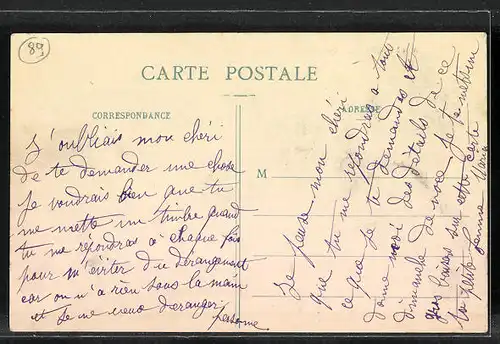 89
CARTE POSTALE
CORRESPONDANCE
ADRESSE
M
J'oubliais mon chéri
de te demander une chose
Je voudrais bien que tu
me mette un timbre quand
tu me répondras à chaque fois
pour m'éviter du dérangement
car on n'a rien sous la main
et je ne veux déranger
personne
Je pense mon chéri
que tu me répondras à tout
ce que je te demandes et
donne moi des détails de ce
dimanche de noce. Je te mettrai
gros baisers sur cette carte
ta petite femme Maria